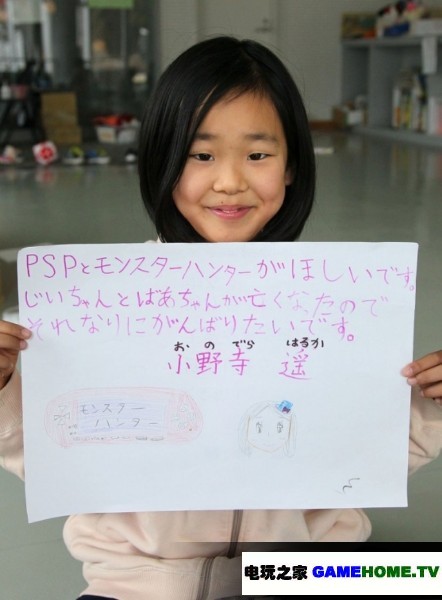 PSPとモンスターハンターがほしいです。
じいちゃんとばあちゃんが亡くなったので
それなりにがんばりたいです。
おのでら はるか
小野寺 遥
モンスター
ハンター
电玩之家 GAMEHOME.TV